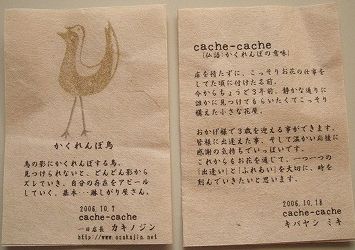 かくれんぼ鳥
鳥の影にかくれんぼする鳥。
見つけられないと、どんどん影から
ズレていき、自分の存在をアピール
していく、基本…淋しがり屋さん。
2006.10.9
cache-cache
一日店長 カキノジン
cache-cache
(仏語:かくれんぼの意味)
店を持たずに、こっそりお花の仕事を
してた頃に付けた名前。
今からちょうど3年前、静かな通りに
誰かに見つけてもらいたくてこっそり
構えた小さな花屋。
おかげ様で3歳を迎える事ができます。
皆様に出逢えた事、そして温かい応援に
感謝の気持ちでいっぱいです。
これからもお花を通じて、一つ一つの
「出逢い」と「ふれあい」を大切に、時を
刻んでいきたいと思います。
2006.10.18
cache-cache
キバヤシ ミキ